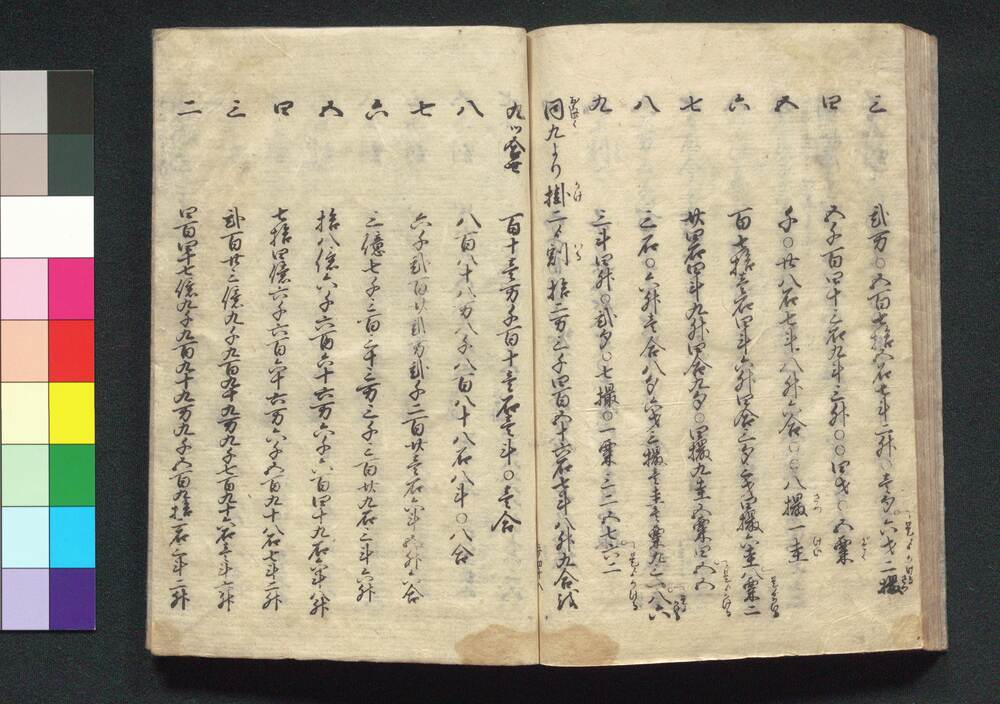 三 弐万〇五百七拾五石七斗二升〇壱夕六才二撮
四 五千百四十三石九斗三升〇〇四才〇五粟
五 千〇廿八石七斗八升六合〇〇八撮一圭
六 百七拾壱石四斗六升四合三夕三才四撮六圭八粟二
七 廿四石四斗九升四合九夕〇四撮九圭五粟四五五
八 三石〇六升壱合八夕六才三撮壱圭壱粟九三一八六
九 三斗四升〇弐夕〇七撮〇一粟三二五七六二
同九より掛二て割 拾二万三千四百五十六石七斗八升九合を
九ツ合せ 百十壱万千百十壱石壱斗〇壱合
八 八百八十八万八千八百八十八石八斗〇八合
七 六千弐百廿弐万弐千二百廿壱石六斗五升六合
六 三億七千三百三十三万三千三百廿九石三斗六升
五 拾八億六千六百六十六万六千六百四十九石六斗八升
四 七拾四億六千六百六十六万六千五百九十八石七斗二升
三 弐百廿三億九千九百九十九万九千七百九十六石壱斗六升
二 四百四十七億九千九百九十九万九千五百九拾二石三斗二升